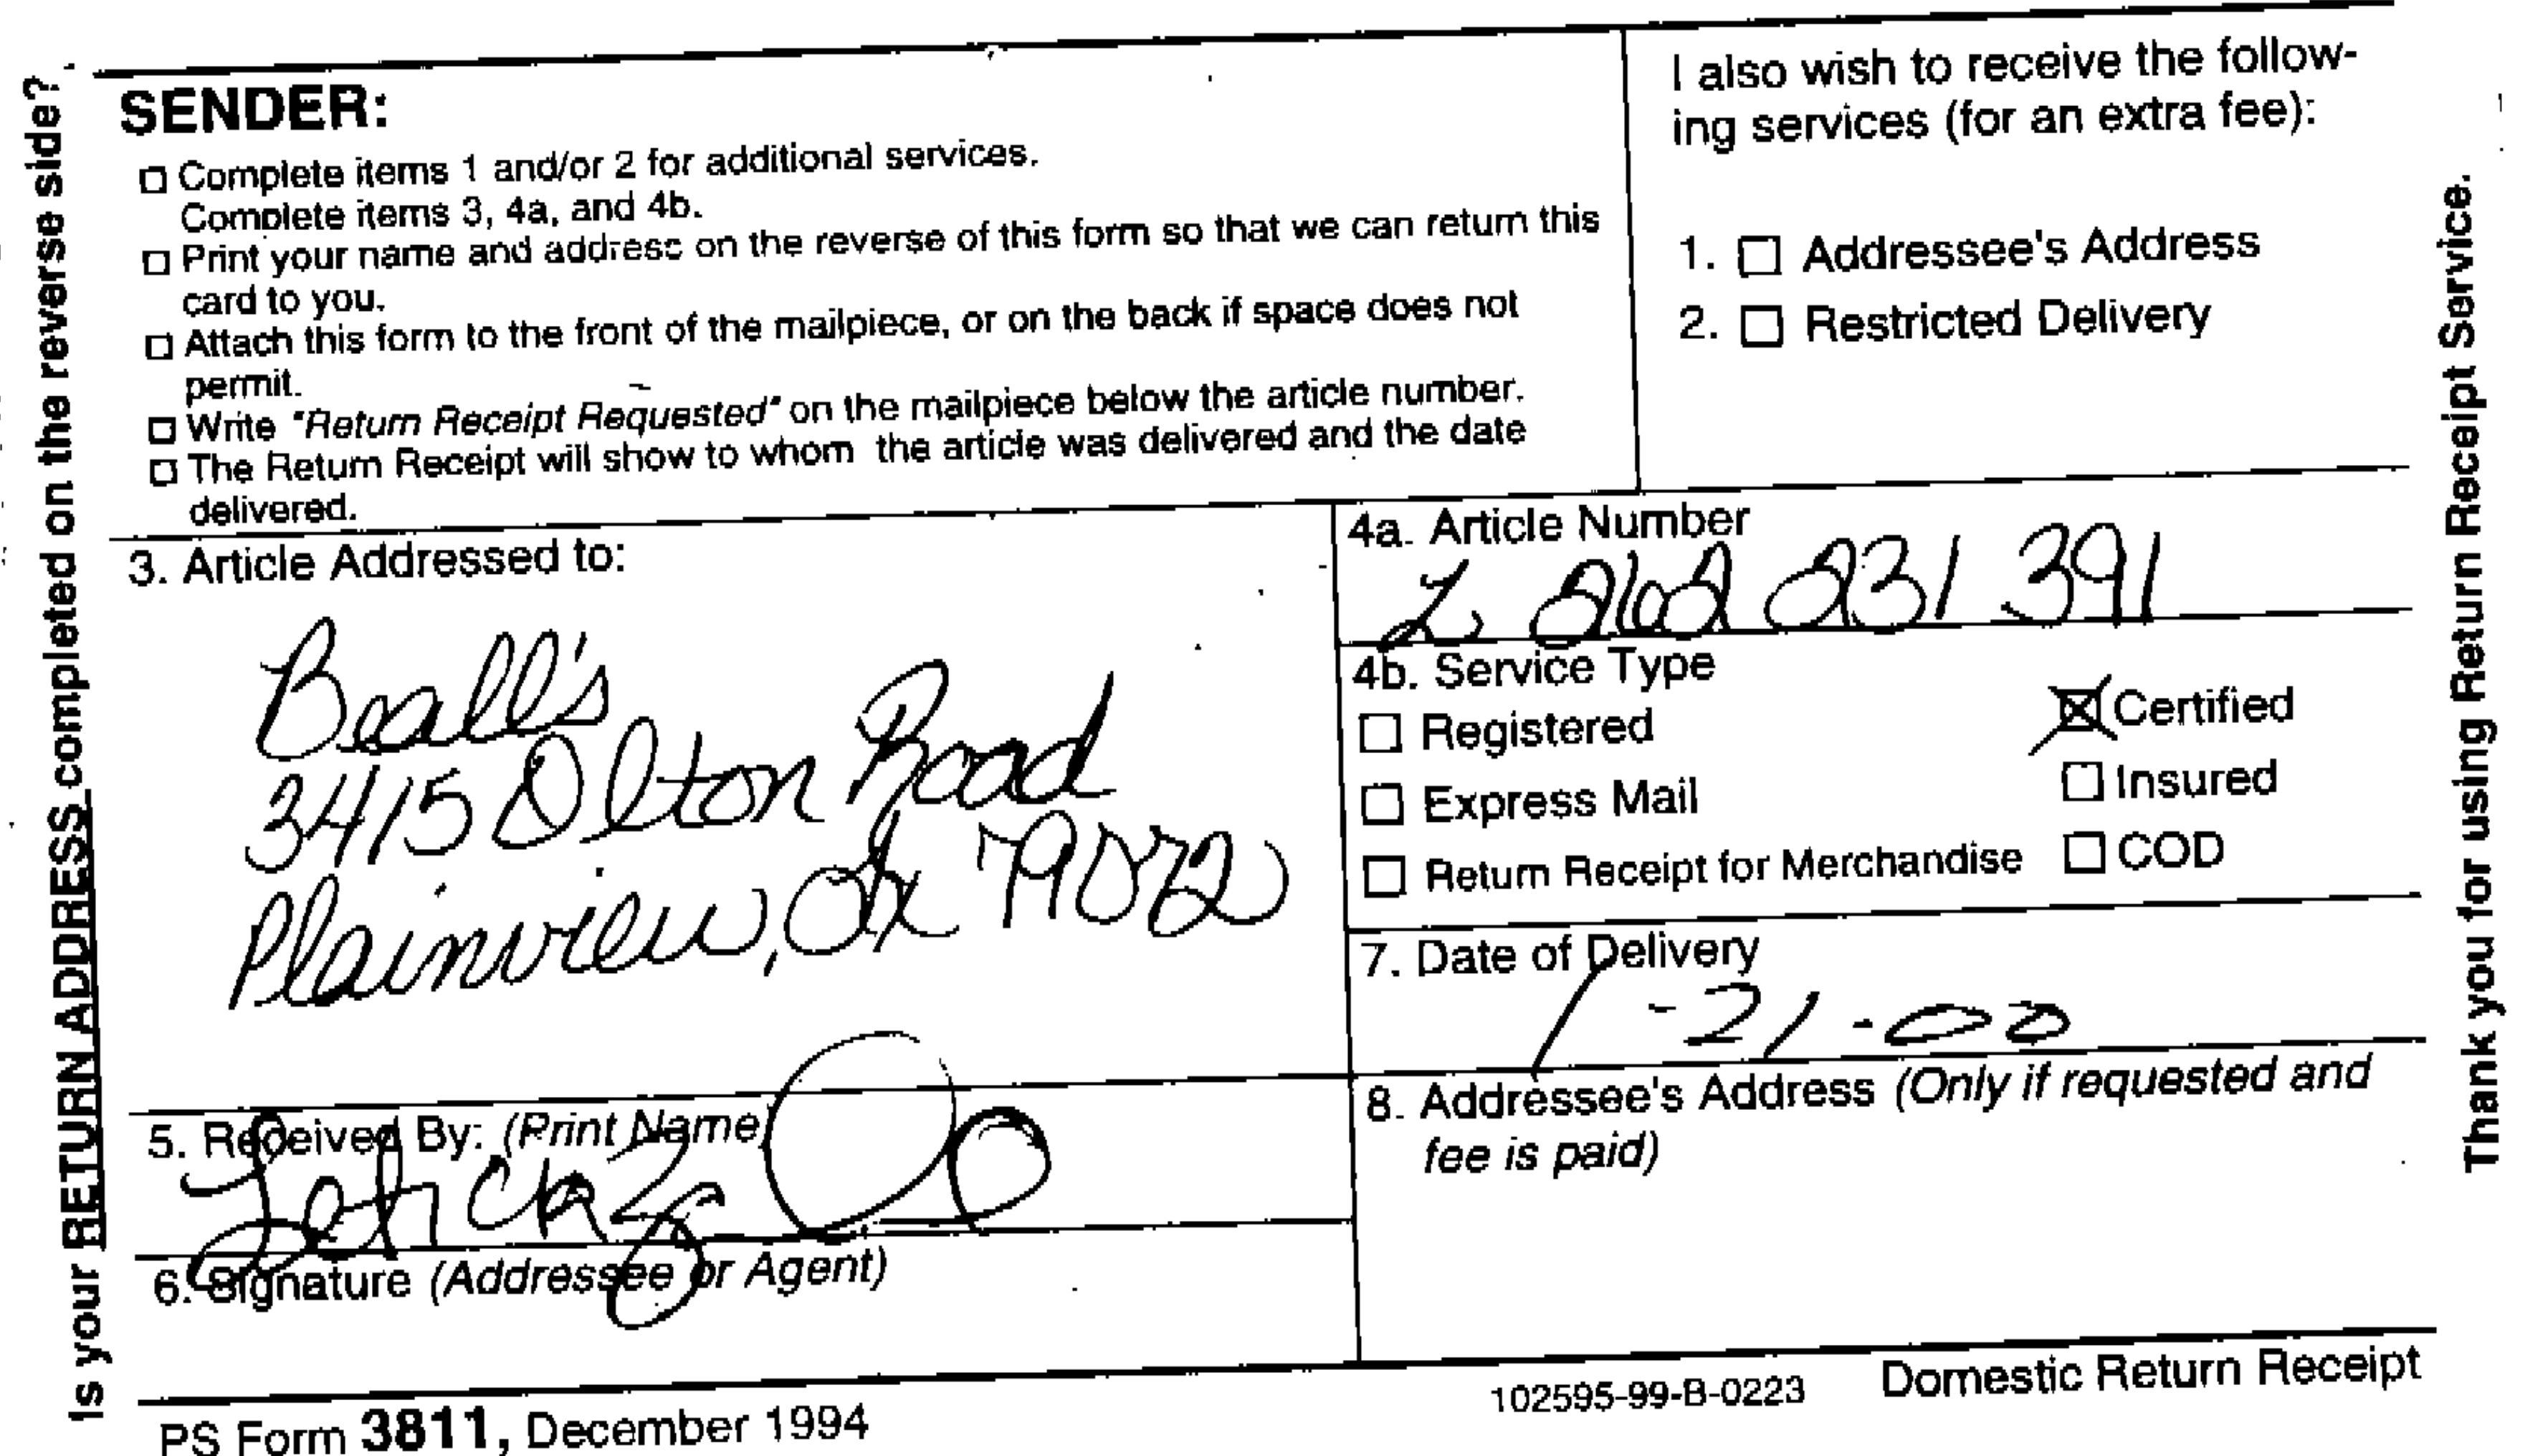 Is your RETURN ADDRESS completed on the reverse side?
SENDER:
☐ Complete items 1 and/or 2 for additional services.
Complete items 3, 4a, and 4b.
☐ Print your name and address on the reverse of this form so that we can return this
card to you.
☐ Attach this form to the front of the mailpiece, or on the back if space does not
permit.
☐ Write "Return Receipt Requested" on the mailpiece below the article number.
☐ The Return Receipt will show to whom the article was delivered and the date
delivered.
I also wish to receive the follow-
ing services (for an extra fee):
1. ☐ Addressee's Address
2. ☐ Restricted Delivery
3. Article Addressed to:
Beall's
3415 Olton Road
Plainview, 79072
4a. Article Number
Z 262 231 391
4b. Service Type
☐ Registered
☒ Certified
☐ Express Mail
☐ Insured
☐ Return Receipt for Merchandise
☐ COD
7. Date of Delivery
1-21-00
5. Received By: (Print Name)
6. Signature (Addressee or Agent)
8. Addressee's Address (Only if requested and
fee is paid)
PS Form 3811, December 1994
102595-99-B-0223
Domestic Return Receipt
Thank you for using Return Receipt Service.